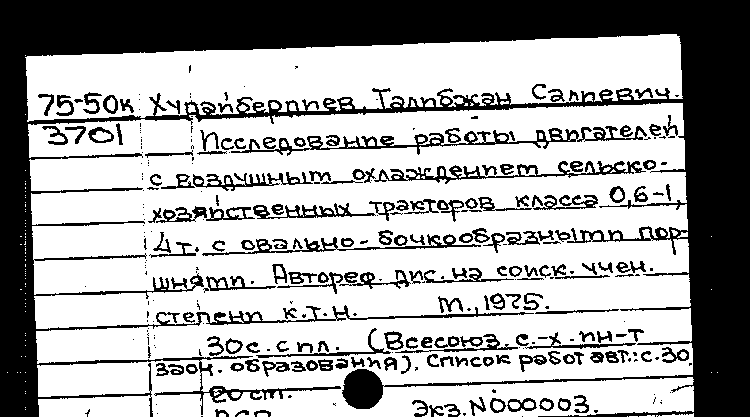 75-50к Худайбердиев, Талибжан Салиевич.
3701 Исследование работы двигателей
с воздушным охлаждением сельско-
хозяйственных тракторов класса 0,6-1,
4т. с овально-бочкообразными пор-
шнями. Автореф. дис. на соиск. учен.
степени к.т.н. М., 1975.
30с. с ил. (Всесоюз. с.-х. ин-т
заоч. образования). Список работ авт.: с. 30
20 ст.
Экз. N000003.